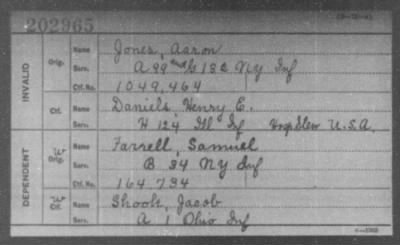 202965
INVALID
Orig. Name Jones, Aaron
Serv. A 99 & G 13 C NY Inf
Ctf. No. 1049,464
Ctf. Name Daniels, Henry E.
Serv. H 124 Ill Inf Hosp Stew U.S.A.
DEPENDENT
W Orig. Name Farrell, Samuel
Serv. B 34 NY Inf
Ctf. No. 164734
W Ctf. Name Jacob
Serv. A 1 Ohio Inf